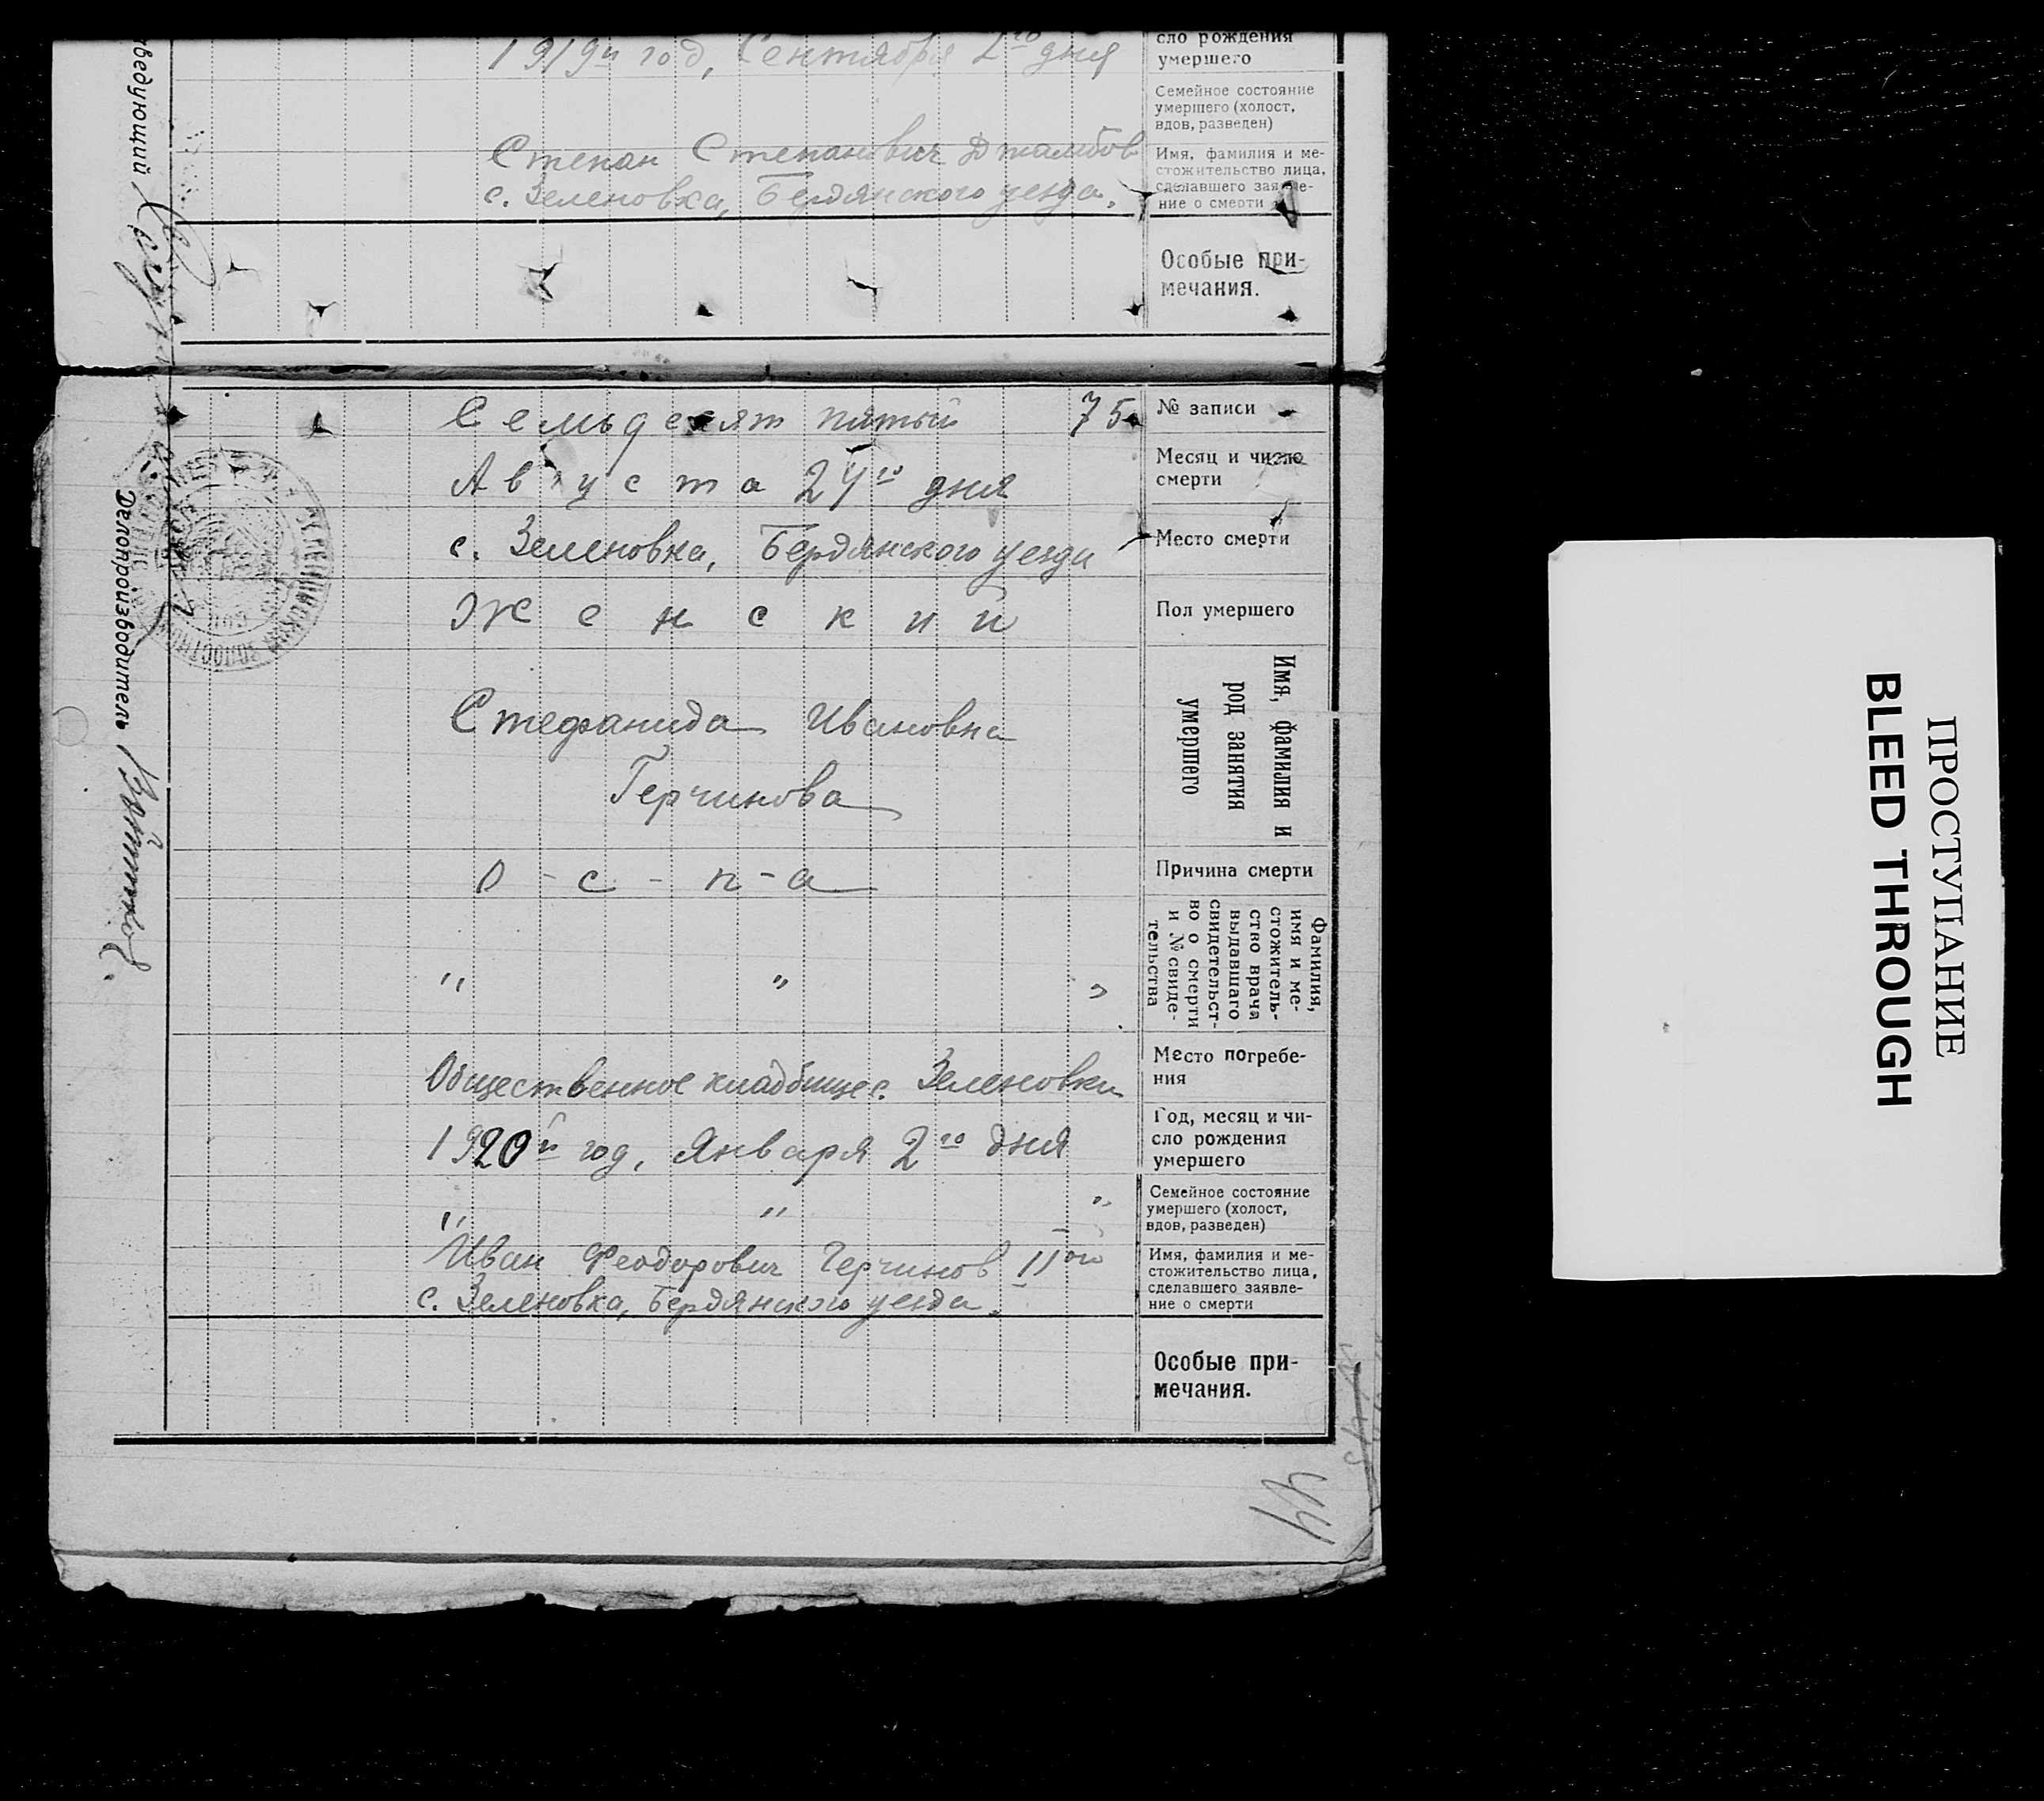 1919й год, Сентября 2го дня
сло рождения
умершего
Семейное состояние
умершего (холост,
вдов, разведен)
Степан Степанович Джамбов
с. Зеленовка, Бердянского уезда.
Имя, фамилия и ме-
стожительство лица,
сделавшего заявле-
ние о смерти
Особые при-
мечания.
Семьдесят пятый 75
№ записи
Августа 24го дня
Месяц и число
смерти
с. Зеленовка, Бердянского уезда
Место смерти
Женский
Пол умершего
Стефанида Ивановна
Герчинова
Имя, фамилия и
род занятия
умершего
О-с-п-а
Причина смерти
" " "
Фамилия,
имя и ме-
стожитель-
ство врача
выдавшего
свидетельст-
во о смерти
и № свиде-
тельства
Общественное кладбище с. Зеленовки
Место погребе-
ния
1920й год, Января 2го дня
Год, месяц и чи-
сло рождения
умершего
" " "
Семейное состояние
умершего (холост,
вдов, разведен)
Иван Феодорович Герчинов IIой
с. Зеленовка, Бердянского уезда.
Имя, фамилия и ме-
стожительство лица,
сделавшего заявле-
ние о смерти
Особые при-
мечания.
ведующий
Делопроизводитель
44
ПРОСТУПАНИЕ
BLEED THROUGH